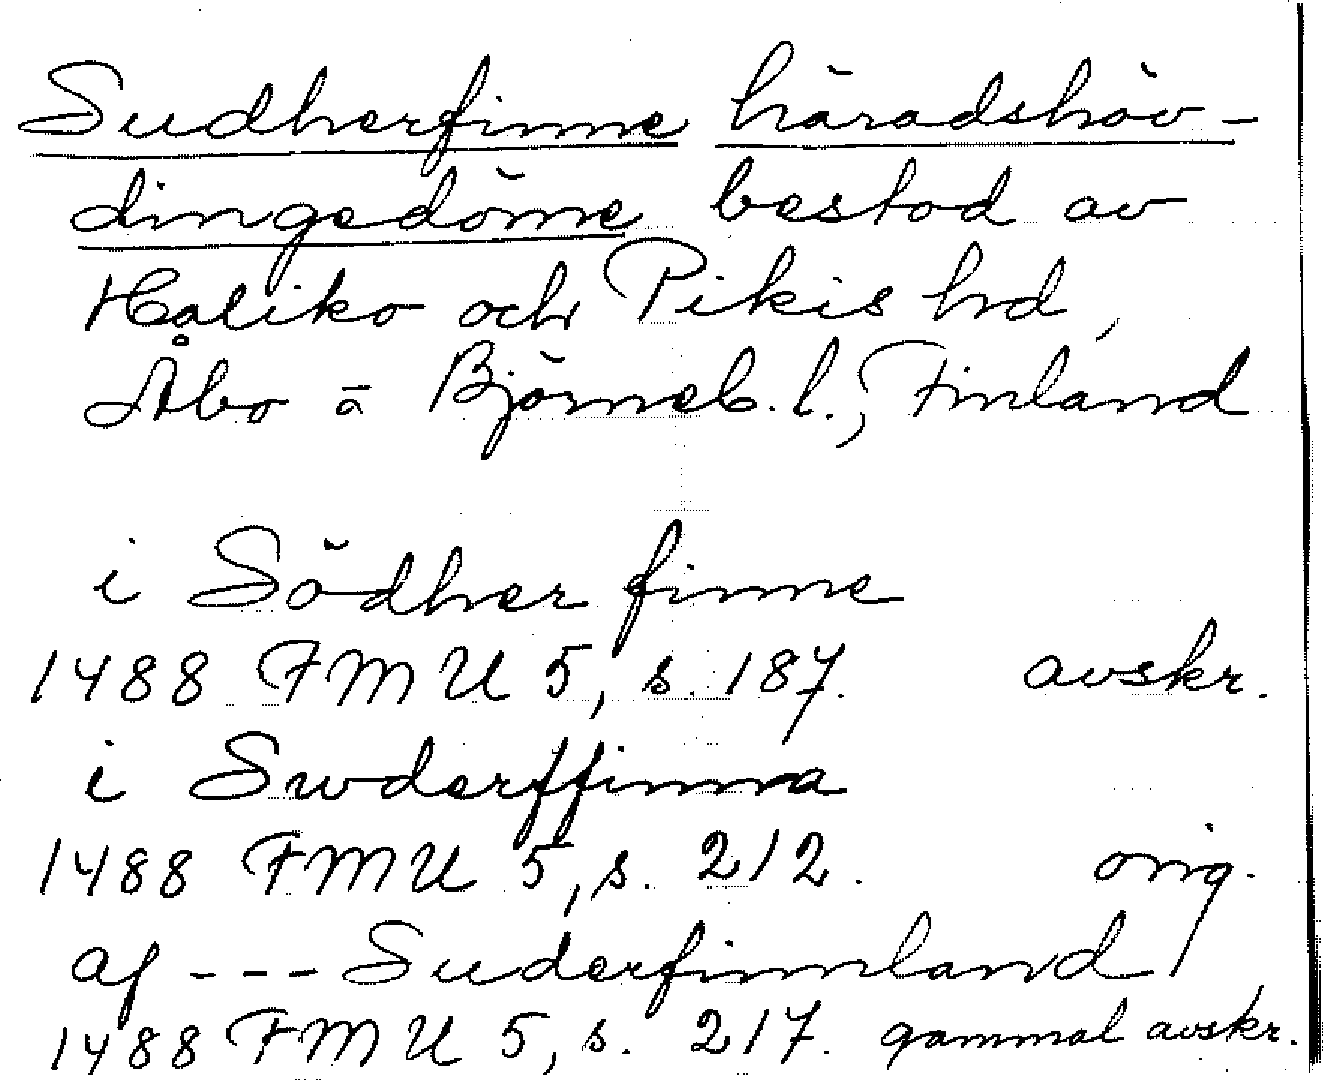 Sudherfinne häradshöv-
dingedöme bestod av
Haliko och Pikis hrd,
Åbo ā Björneb. l., Finland
i Södher finne
1488 FMU 5, s. 187. avskr.
i Swderffinna
1488 FMU 5, s. 212. orig.
af --- Suderfinnland
1488 FMU 5, s. 217. gammal avskr.